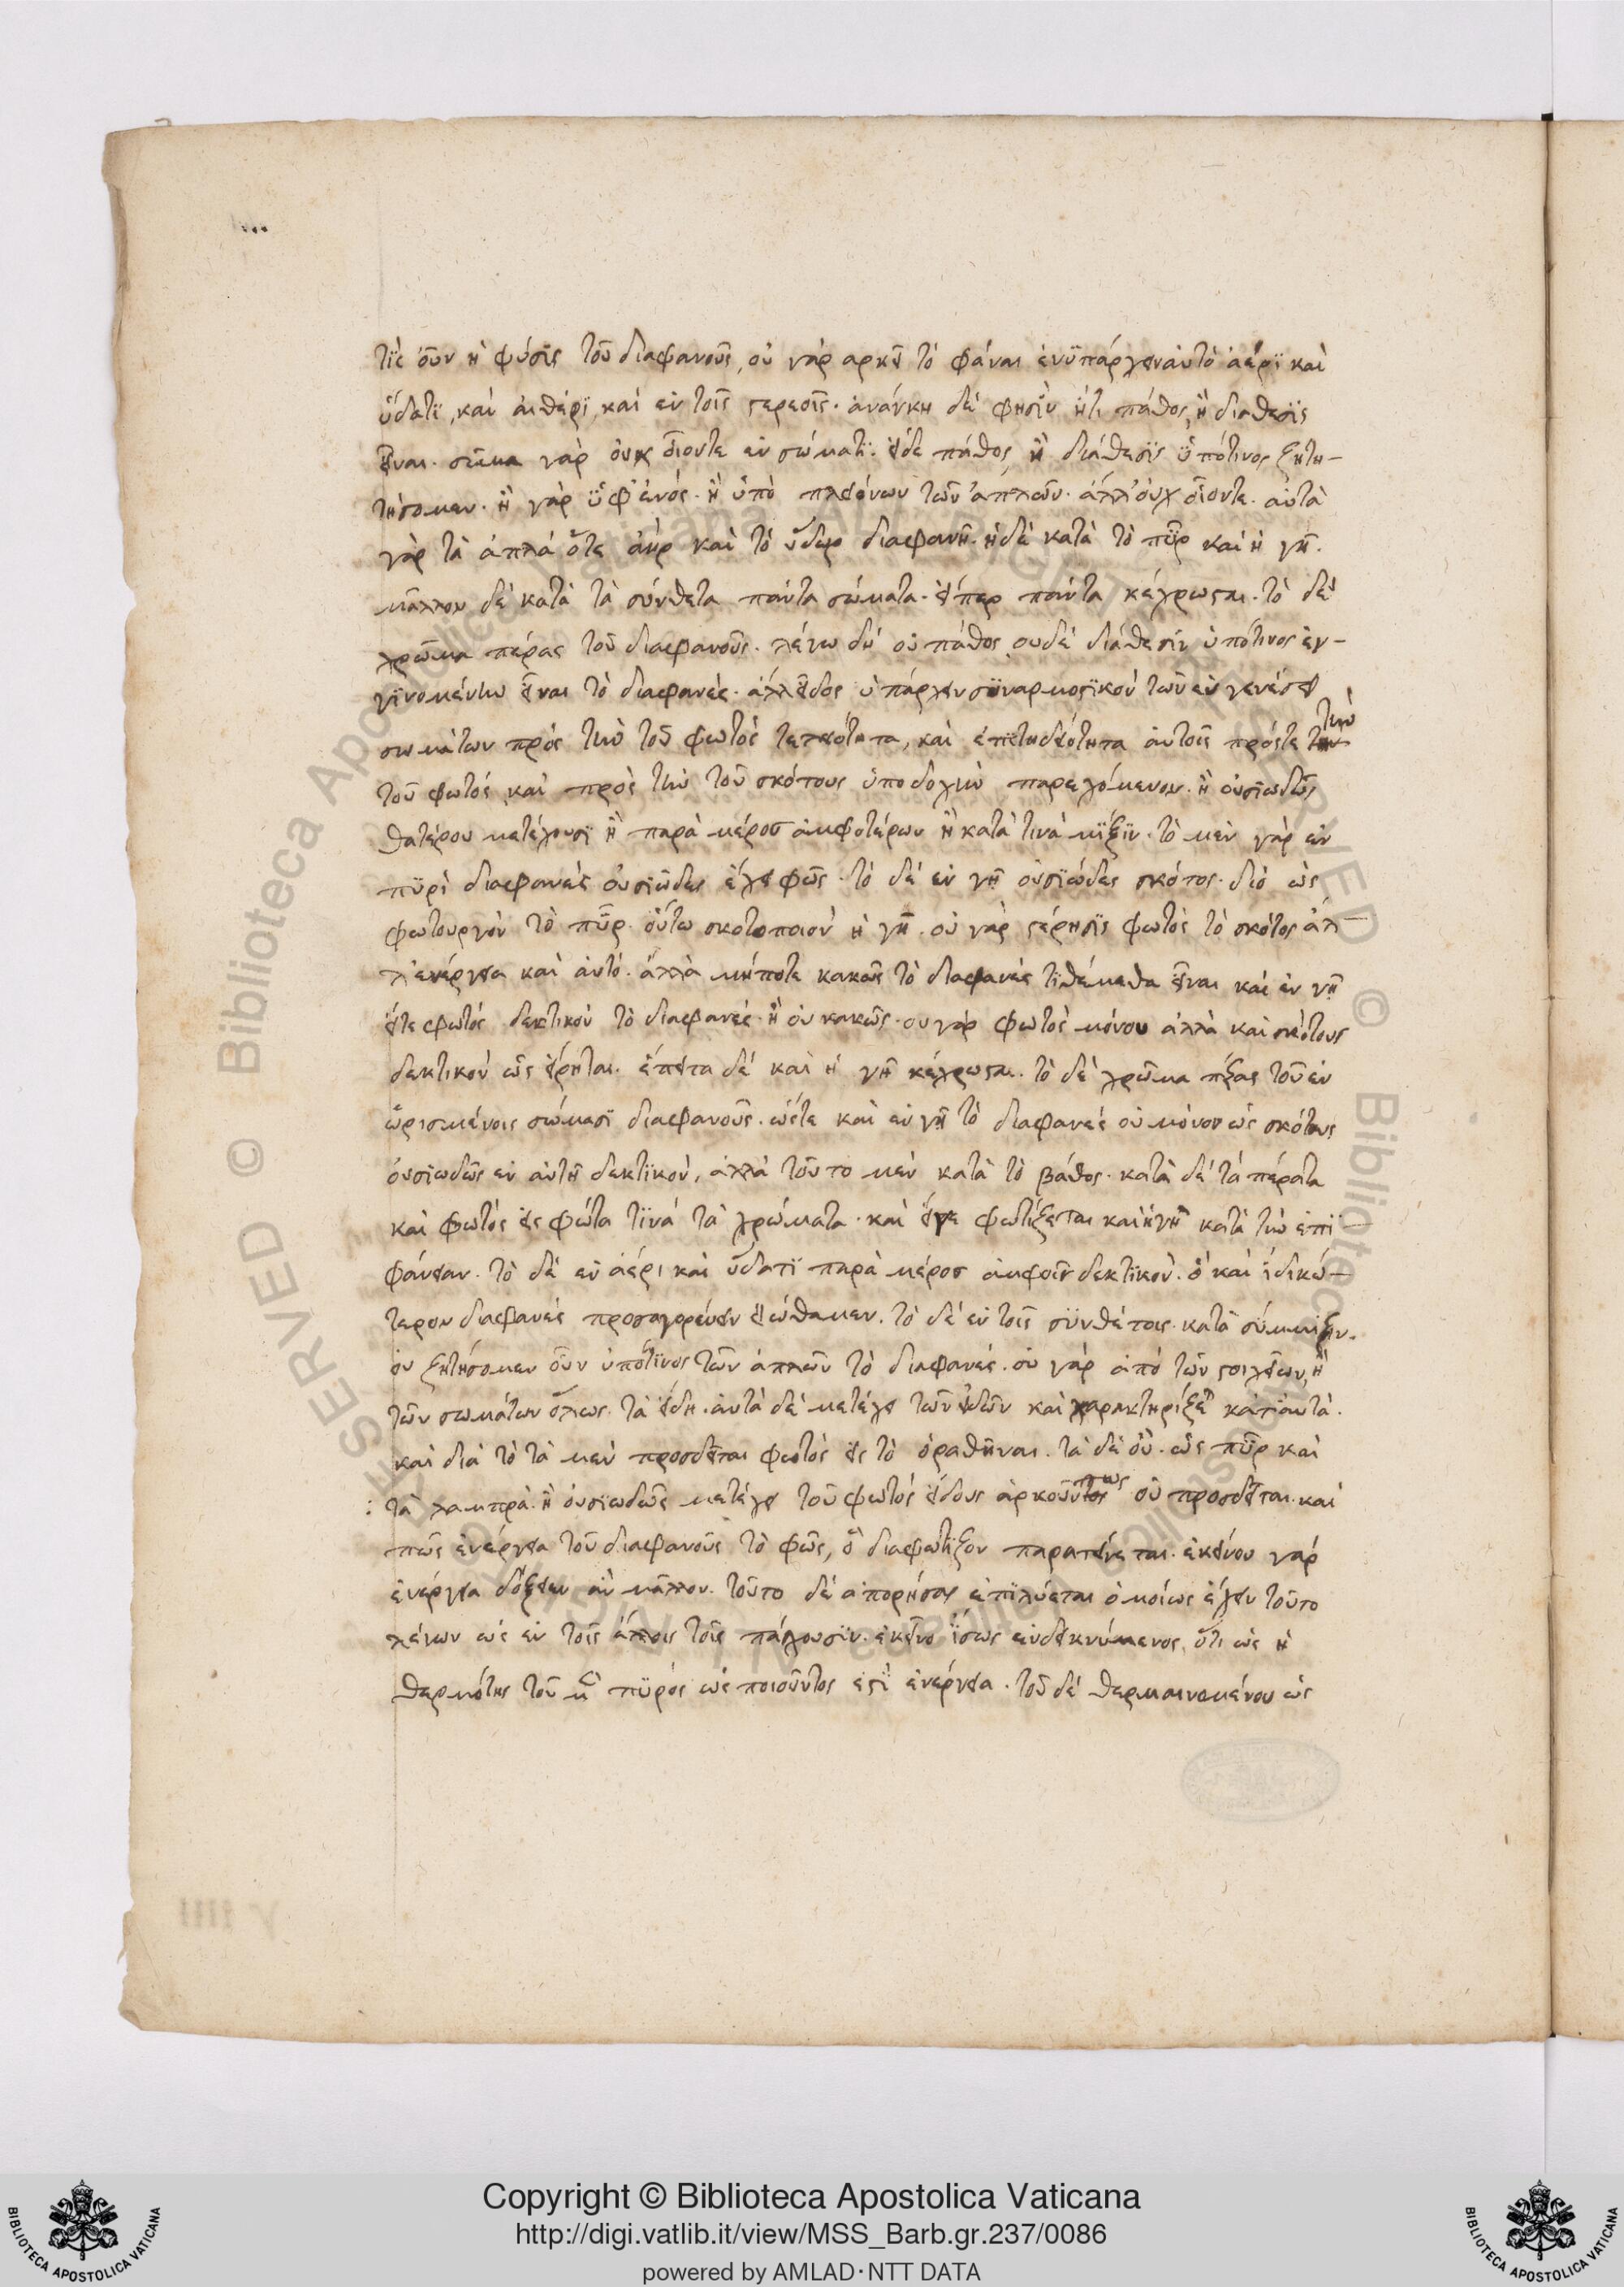 τίς οὖν ἡ φύσις τοῦ διαφανοῦς, οὐ γὰρ αρκεῖ τὸ φάναι ἐνϋπάρχειν αὐτὸ ἀέρϊ καὶ
ὕδατϊ, καὶ αἰθέρϊ, καὶ εν τοῖς στερεοῖς. ἀνάγκη δέ φησὶν ἤτι πάθος, ἢ διαθεσϊς
εἶναι. σῶμα γὰρ οὐχ οἷοντε εν σώματϊ. εἰδε πάθος ἢ διάθεσϊς ὑπότινος ζητη-
τήσομεν. ἢ γὰρ ὑφ' ἑνός. ἢ ὑπὸ πλειόνων τῶν ἁπλῶν. ἀλλ' οὐχ οἷοντε. αὐτὰ
γὰρ τὰ ἁπλά ὅτε ἀὴρ καὶ τὸ ὕδωρ διαφανῆ. ἤδὲ κατὰ τὸ πῦρ καὶ ἡ γῆ.
μᾶλλον δὲ κατὰ τὰ σύνθετα πάντα σώματα. εἴπερ πάντα κέχρωσται. τὸ δὲ
χρῶμα πέρας τοῦ διαφανοῦς. λέγω δὴ οὐ πάθος ουδὲ διάθεσϊν ὑπότινος ἐγ-
γϊνομένην εἶναι τὸ διαφανές. ἀλλ' εἶδος ὑπάρχειν σϋναρμοστϊκόν τῶν εν γενέσει
σωμάτων πρός τὴν τοῦ φωτός τελειότητα, και ἐπϊτηδειότητα αὐτοῖς πρόστε τὴν τὴν
τοῦ φωτός καὶ πρὸς τὴν τοῦ σκότους ὑποδοχὴν παρεχόμενον. ἢ οὐσϊωδῶς
θατέρου μετέχουσϊ ἢ παρὰ μέρος αμφοτέρων ἢ κατά τινά μῖξϊν. τὸ μὲν γὰρ εν
πϋρὶ διαφανὲς οὐσϊῶδες ἔχει φῶς. τὸ δέ εν γῇ οὐσϊώδες σκότος. διό ὡς
φωτουργόν τὸ πῦρ. οὕτω σκοτοποιόν ἡ γῆ. οὐ γὰρ στέρησϊς φωτός τὸ σκότος ἀλ-
λ' ενέργεια καὶ ἀυτό. ἀλλὰ μήποτε κακῶς τὸ διαφανές τϊθέμεθα εἶναι καὶ ἐν γῇ
εἴτε φωτός δεκτικόν τὸ διαφανές. ἢ οὐ κακῶς. ου γάρ φωτὸς μόνου ἀλλὰ καὶ σκότους
δεκτικόν ὡς εἴρηται. ἔπειτα δέ καὶ ἡ γῆ κέχρωσται. τὸ δὲ χρῶμα πέρας τοῦ εν
ὡρισμένοις σώμασϊ διαφανοῦς. ὥστε καὶ εν γῇ τὸ διαφανές οὐ μόνον ὡς σκότους
ουσϊωδῶς εν αὐτῇ δεκτϊκόν, ἀλλὰ τοῦτο μὲν κατὰ τὸ βάθος. κατὰ δέ τὰ πέρατα
καὶ φωτός εἰς φῶτα τϊνά τὰ χρώματα. καὶ εἴγε φωτίζεται καὶ ἡ γῆ κατὰ τὴν ἐπϊ-
φάνειαν. τὸ δὲ εν ἀέρι καὶ ὕδατϊ παρὰ μέρος ἀμφοῖν δεκτϊκόν. ὁ καὶ ἰδικώ-
τερον διαφανές προσαγορεύειν εἰώθαμεν. τὸ δὲ εν τοῖς σϋνθέτοις κατὰ σύμμιξιν.
οὐ ζητήσομεν οὖν ὑπότϊνος τῶν ἁπλῶν τὸ διαφανές. οὐ γὰρ ἀπό τῶν στοιχείων, ἢ
τῶν σωμάτων ὅλως. τὰ εἴδη. αὐτὰ δὲ μετέχει τῶν εἰδῶν καὶ χαρακτηρίζεται κατ' αυτά.
καὶ διὰ τὸ τὰ μὲν προσδεῖται φωτός εἰς τὸ ὁραθῆναι. τὰ δὲ οὔ. ὡς πῦρ καὶ
τὰ λαμπρὰ. ἢ ουσϊωδῶς μετέχει τοῦ φωτός εἴδους ἀρκοῦντος πως οὐ προσδεῖται. καὶ
πῶς ἐνέργεια τοῦ διαφανοῦς τὸ φῶς, ὃ διαφωτϊζον παραγίνεται. ἐκείνου γάρ
ἐνέργεια δόξειεν αν μᾶλλον. τοῦτο δέ ἀπορήσας επϊλύεται ὁμοίως ἔχειν τοῦτο
λέγων ὡς εν τοῖς ἄλλοις τοῖς πάσχουσϊν. ἐκεῖνο ἴσως ενδεικνύμενος. ὅτι ὡς ἡ
θερμότης τοῦ μὲν πϋρός ὡς ποιοῦντος εστϊ ἐνέργεια. τοῦ δέ θερμαινομένου ὡς
Copyright © Biblioteca Apostolica Vaticana
http://digi.vatlib.it/view/MSS_Barb.gr.237/0086
powered by AMLAD·NTT DATA